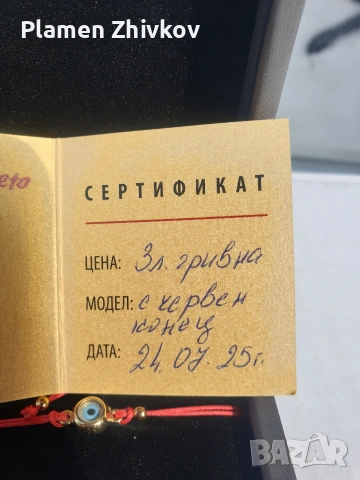 Plamen Zhivkov
ето
СЕРТИФИКАТ
ЦЕНА: Зл. гривна
МОДЕЛ: с червен
конец
ДАТА: 24.07.25г.
BAZAR